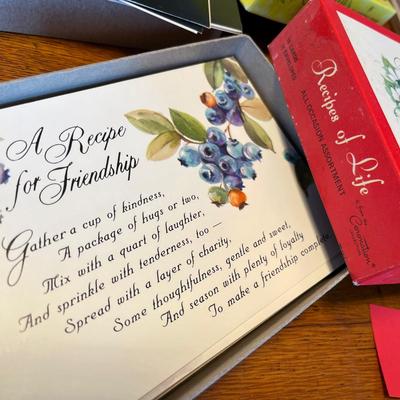 A Recipe
for Friendship
Gather a cup of kindness,
A package of hugs or two,
Mix with a quart of laughter,
And sprinkle with tenderness, too —
Spread with a layer of charity,
Some thoughtfulness, gentle and sweet,
And season with plenty of loyalty
To make a friendship complete.
Recipes of Life
ALL OCCASION ASSORTMENT
Coronation
COLLECTION